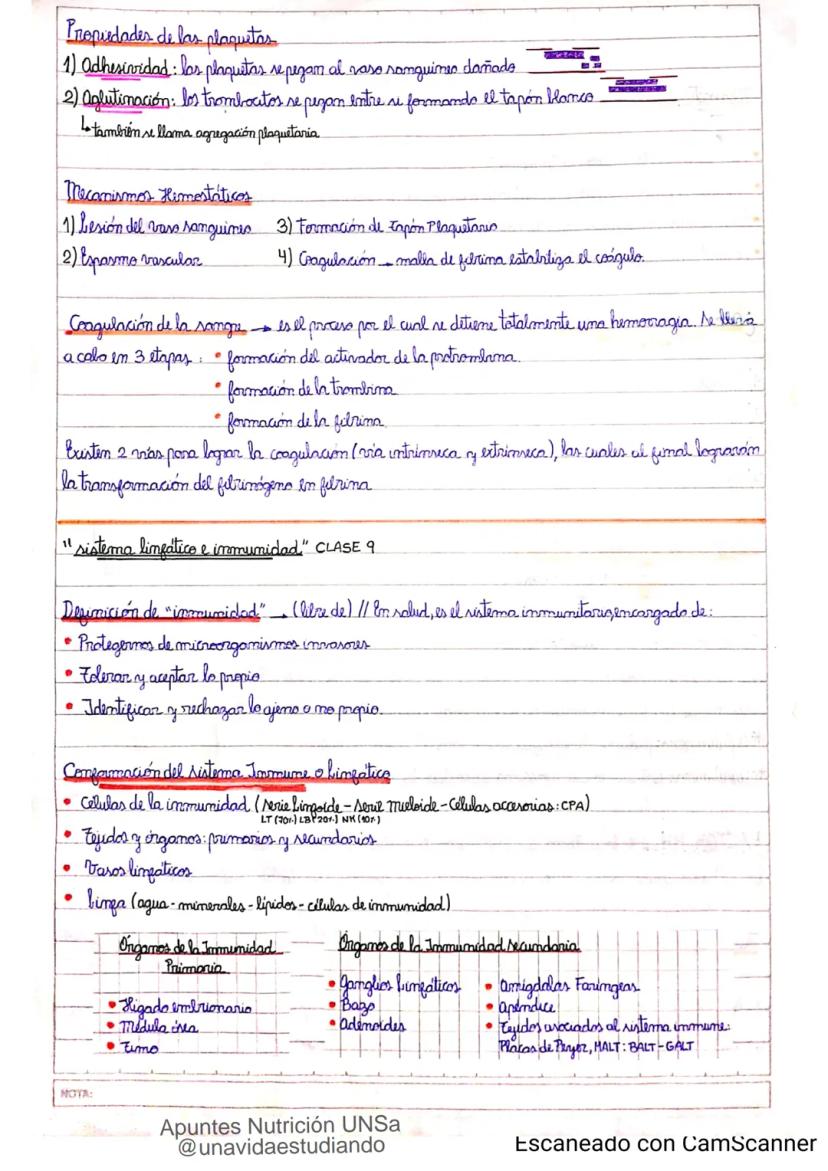 Propiedades de las plaquetas
1) Adhesividad: las plaquetas se pegan al vaso sanguineo dañado
2) Aglutinación: los trombocitos se pegan entre si formando el tapón blanco
↳ también se llama agregación plaquetaria
Mecanismos Hemostáticos
1) Lesión del vaso sanguineo 3) Formación de Tapón Plaquetario
2) Espasmo vascular 4) Coagulación → malla de fibrina estabiliza el coágulo.
Coagulación de la sangre → es el proceso por el cual se detiene totalmente una hemorragia. Se lleva
a cabo en 3 etapas: • formación del activador de la protrombina.
• formación de la trombina
• formación de la fibrina
Existen 2 vías para lograr la coagulación (vía intrinseca y extrinseca), las cuales al final lograrán
la transformación del fibrinógeno en fibrina
"sistema linfático e inmunidad" CLASE 9
Definición de "inmunidad" → (libre de) // En salud, es el sistema inmunitario, encargado de:
• Protegernos de microorganismos invasores
• Tolerar y aceptar lo propio
• Identificar y rechazar lo ajeno o no propio.
Conformación del sistema Inmune o Linfático
• Células de la inmunidad (Serie Linfoide - Serie Mieloide - Células accesorias: CPA)
LT (70%) LB (20%) NK (10%)
• Tejidos y órganos: primarios y secundarios
• Vasos linfáticos
• Linfa (agua - minerales - lípidos - células de inmunidad)
Órganos de la Inmunidad
Primaria
• Hígado embrionario
• Médula ósea
• Timo
Órganos de la Inmunidad Secundaria
• Ganglios Linfáticos
• Bazo
• Adenoides
• Amigdalas Faringeas
• Apéndice
• Tejidos asociados al sistema inmune:
Placas de Peyer, MALT: BALT - GALT
NOTA:
Apuntes Nutrición UNSa
@unavidaestudiando
Escaneado con CamScanner